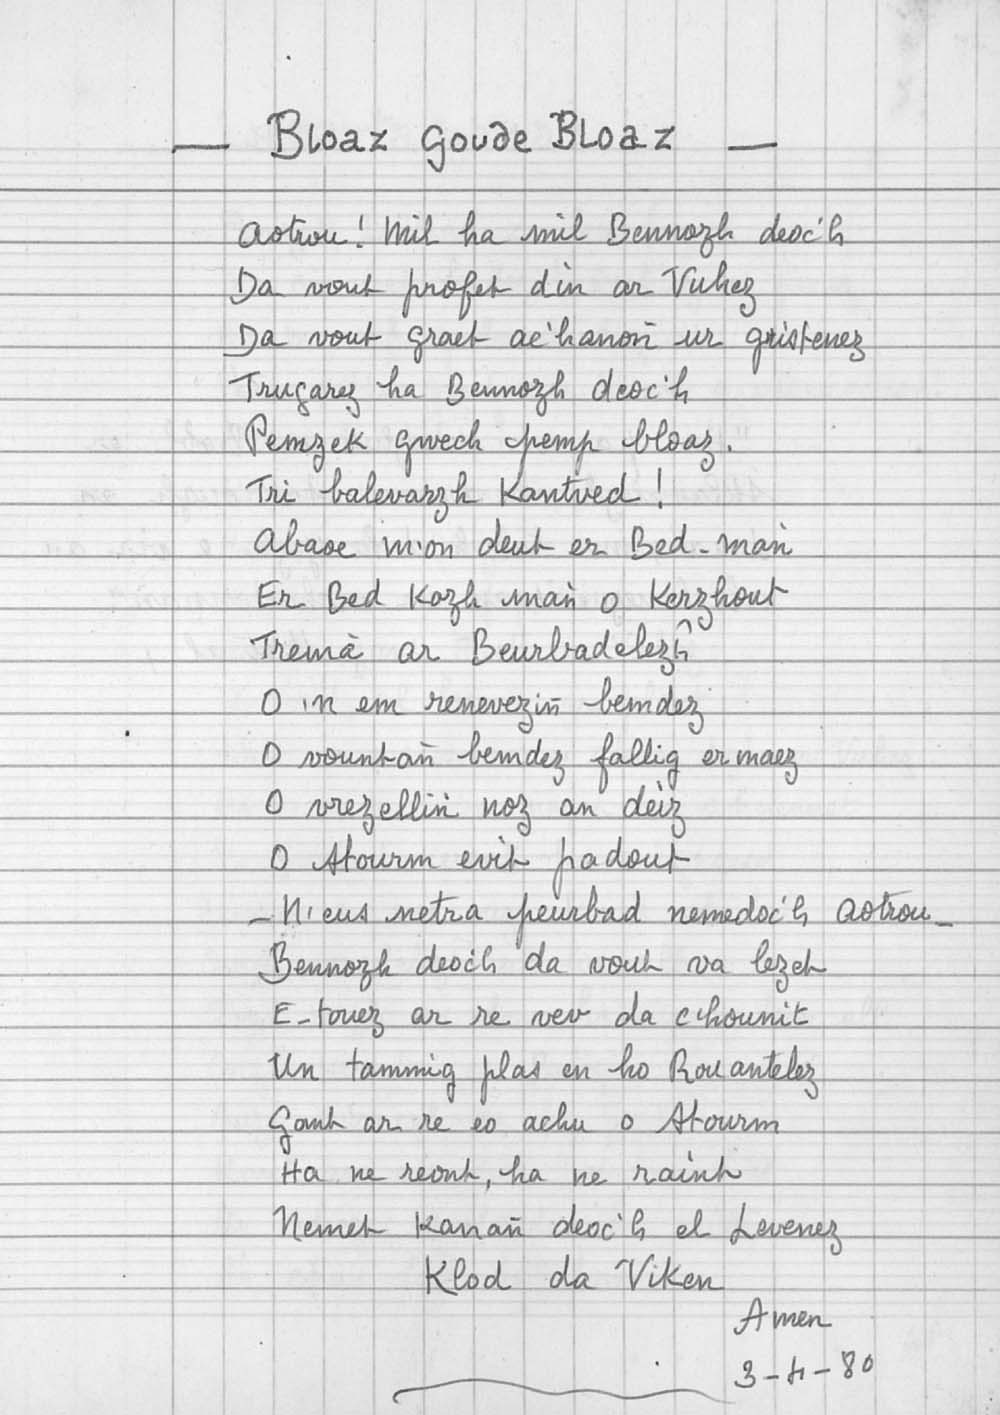 — Bloaz goude Bloaz —
Aotrou! Mil ha mil Bennozh deoc'h
Da vout profet din ar Vuhez
Da vout graet ac'hanoñ ur gristenez
Trugarez ha Bennozh deoc'h
Pemzek gwech pemp bloaz.
Tri balevarzh Kantved!
Abaoe m'on deut er Bed-mañ
Er Bed Kozh mañ o Kerzhout
Tremà ar Beurbadelezh
O 'n em reneveziñ bemdez
O vountañ bemdez fallig er maez
O vrezelliñ noz an deiz
O Stourm evit padout
- N'eus netra peurbad nemedoc'h Aotrou -
Bennozh deoc'h da vout va lezet
E-touez ar re vev da c'hounit
Un tammig plas en ho Rouantelez
Gant ar re eo achu o Stourm
Ha ne reont, ha ne raint
Nemet Kanañ deoc'h el Levenez
Klod da Viken
Amen
3-4-80